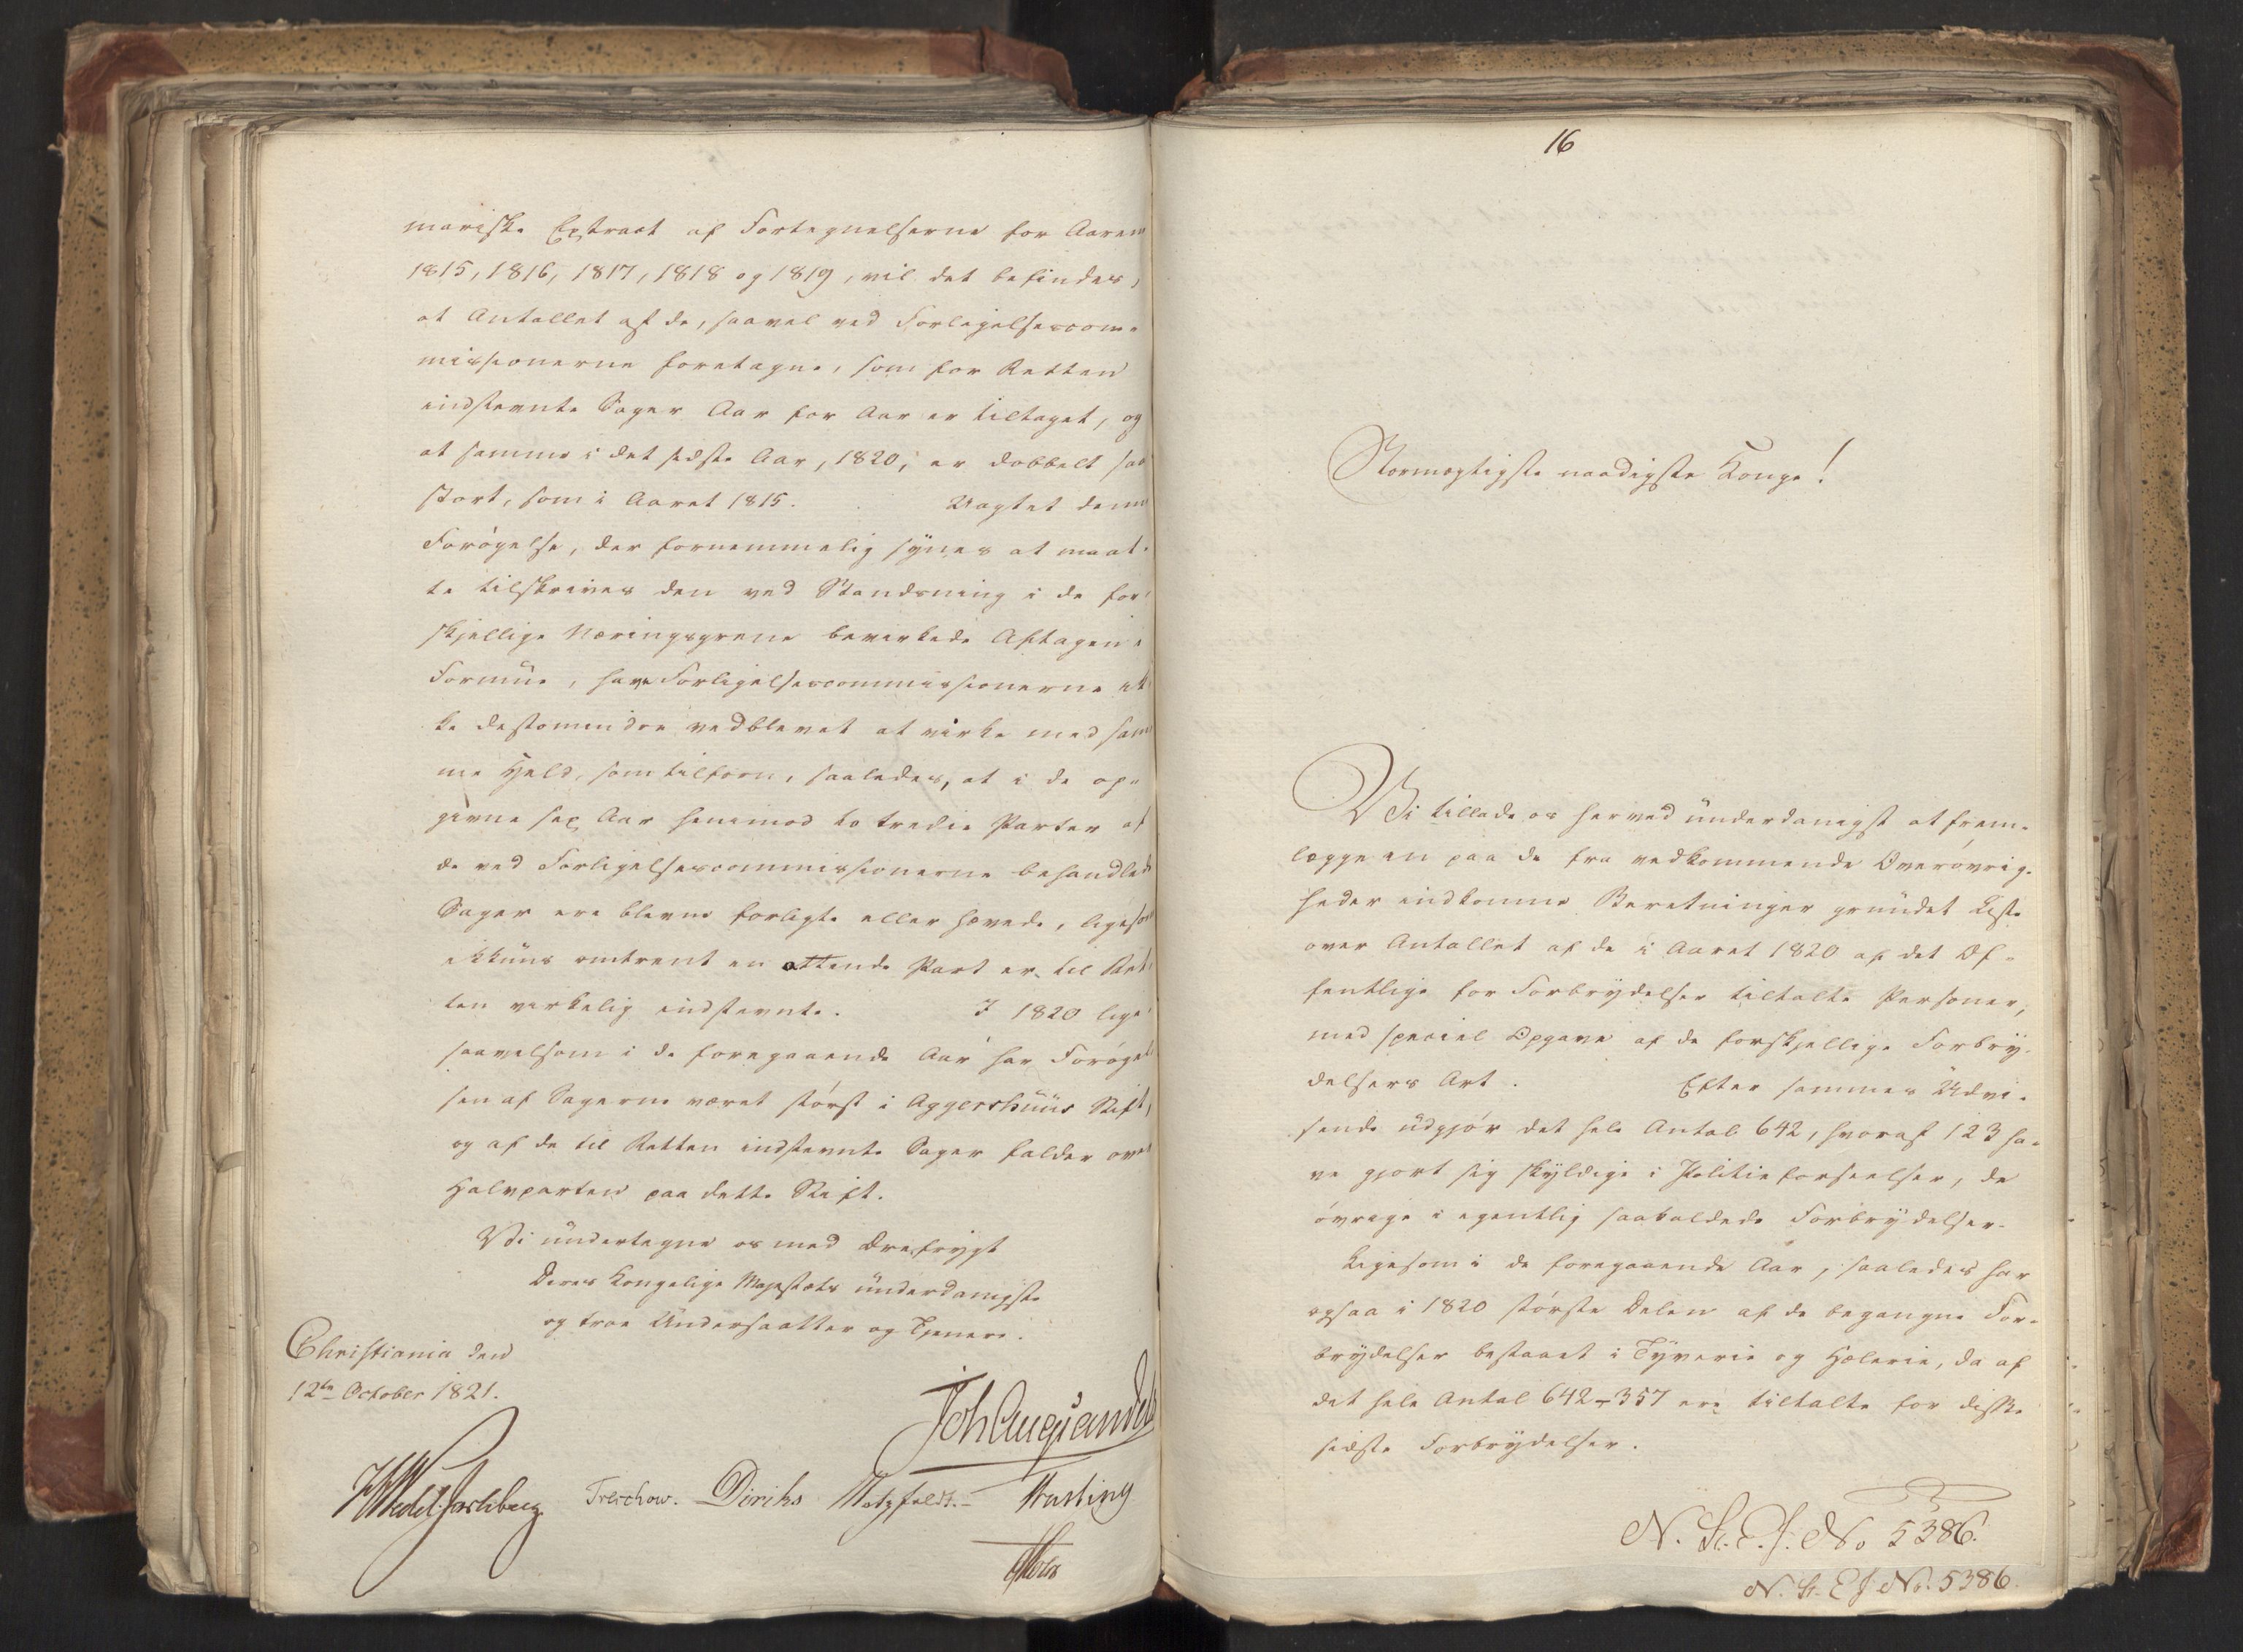 mariske Extract af Fortegnelserne for Aarene
1815, 1816, 1817, 1818 og 1819, vil det befindes,
at Antallet af de, saavel ved Forligelsescom-
missionerne foretagne, som for Retten
indstevnte Sager Aar for Aar er tiltaget, og
at samme i det sidste Aar, 1820, er dobbelt saa
stort, som i Aaret 1815. Uagtet denne
Forøgelse, der fornemmelig synes at maat-
te tilskrives den ved Standsning i de for-
skjellige Næringsgrene bevirkede Aftagen i
Formue, have Forligelsescommissionerne ik-
ke destomindre vedblevet at virke med sam-
me Held, som tilforn, saaledes, at i de op-
givne sex Aar henimod to tredie Parter af
de ved Forligelsescommissionerne behandlede
Sager ere blevne forligte eller hævede, ligesom
ikkuns omtrent en ottende Part er til Ret-
ten virkelig indstevnte. I 1820 lige-
saavelsom i de foregaaende Aar har Forøgel-
sen af Sagerne været størst i Aggershuus Stift,
og af de til Retten indstevnte Sager falder over
Halvparten paa dette Stift.
Vi undertegne os med Ærefrygt
Deres Kongelige Majestæts underdanigste
og troe Undersaatter og Tjenere.
Christiania den
12te October 1821.
Joh Aug Sandels
HWedel Jarlsberg Treschow. Diriks Motzfeldt. Fasting
16
Stormægtigste naadigste Konge!
Vi tillade os herved underdanigst at frem-
lægge en paa de fra vedkommende Overøvrig-
heder indkomne Beretninger grundet Liste
over Antallet af de i Aaret 1820 af det Of-
fentlige for Forbrydelser tiltalte Personer,
med speciel Opgave af de forskjellige Forbry-
delsers Art. Efter sammes Udvi-
sende udgjør det hele Antal 642, hvoraf 123 ha-
ve gjort sig skyldige i Politieforseelser, de
øvrige i egentlig saakaldede Forbrydelser.
Ligesom i de foregaaende Aar, saaledes har
ogsaa i 1820 største Delen af de begangne For-
brydelser bestaaet i Tyverie og Hælerie, da af
det hele Antal 642 - 357 ere tiltalte for disse
sidste Forbrydelser.
N. St. E. J: No 5386.
N. St. E J No. 5386.